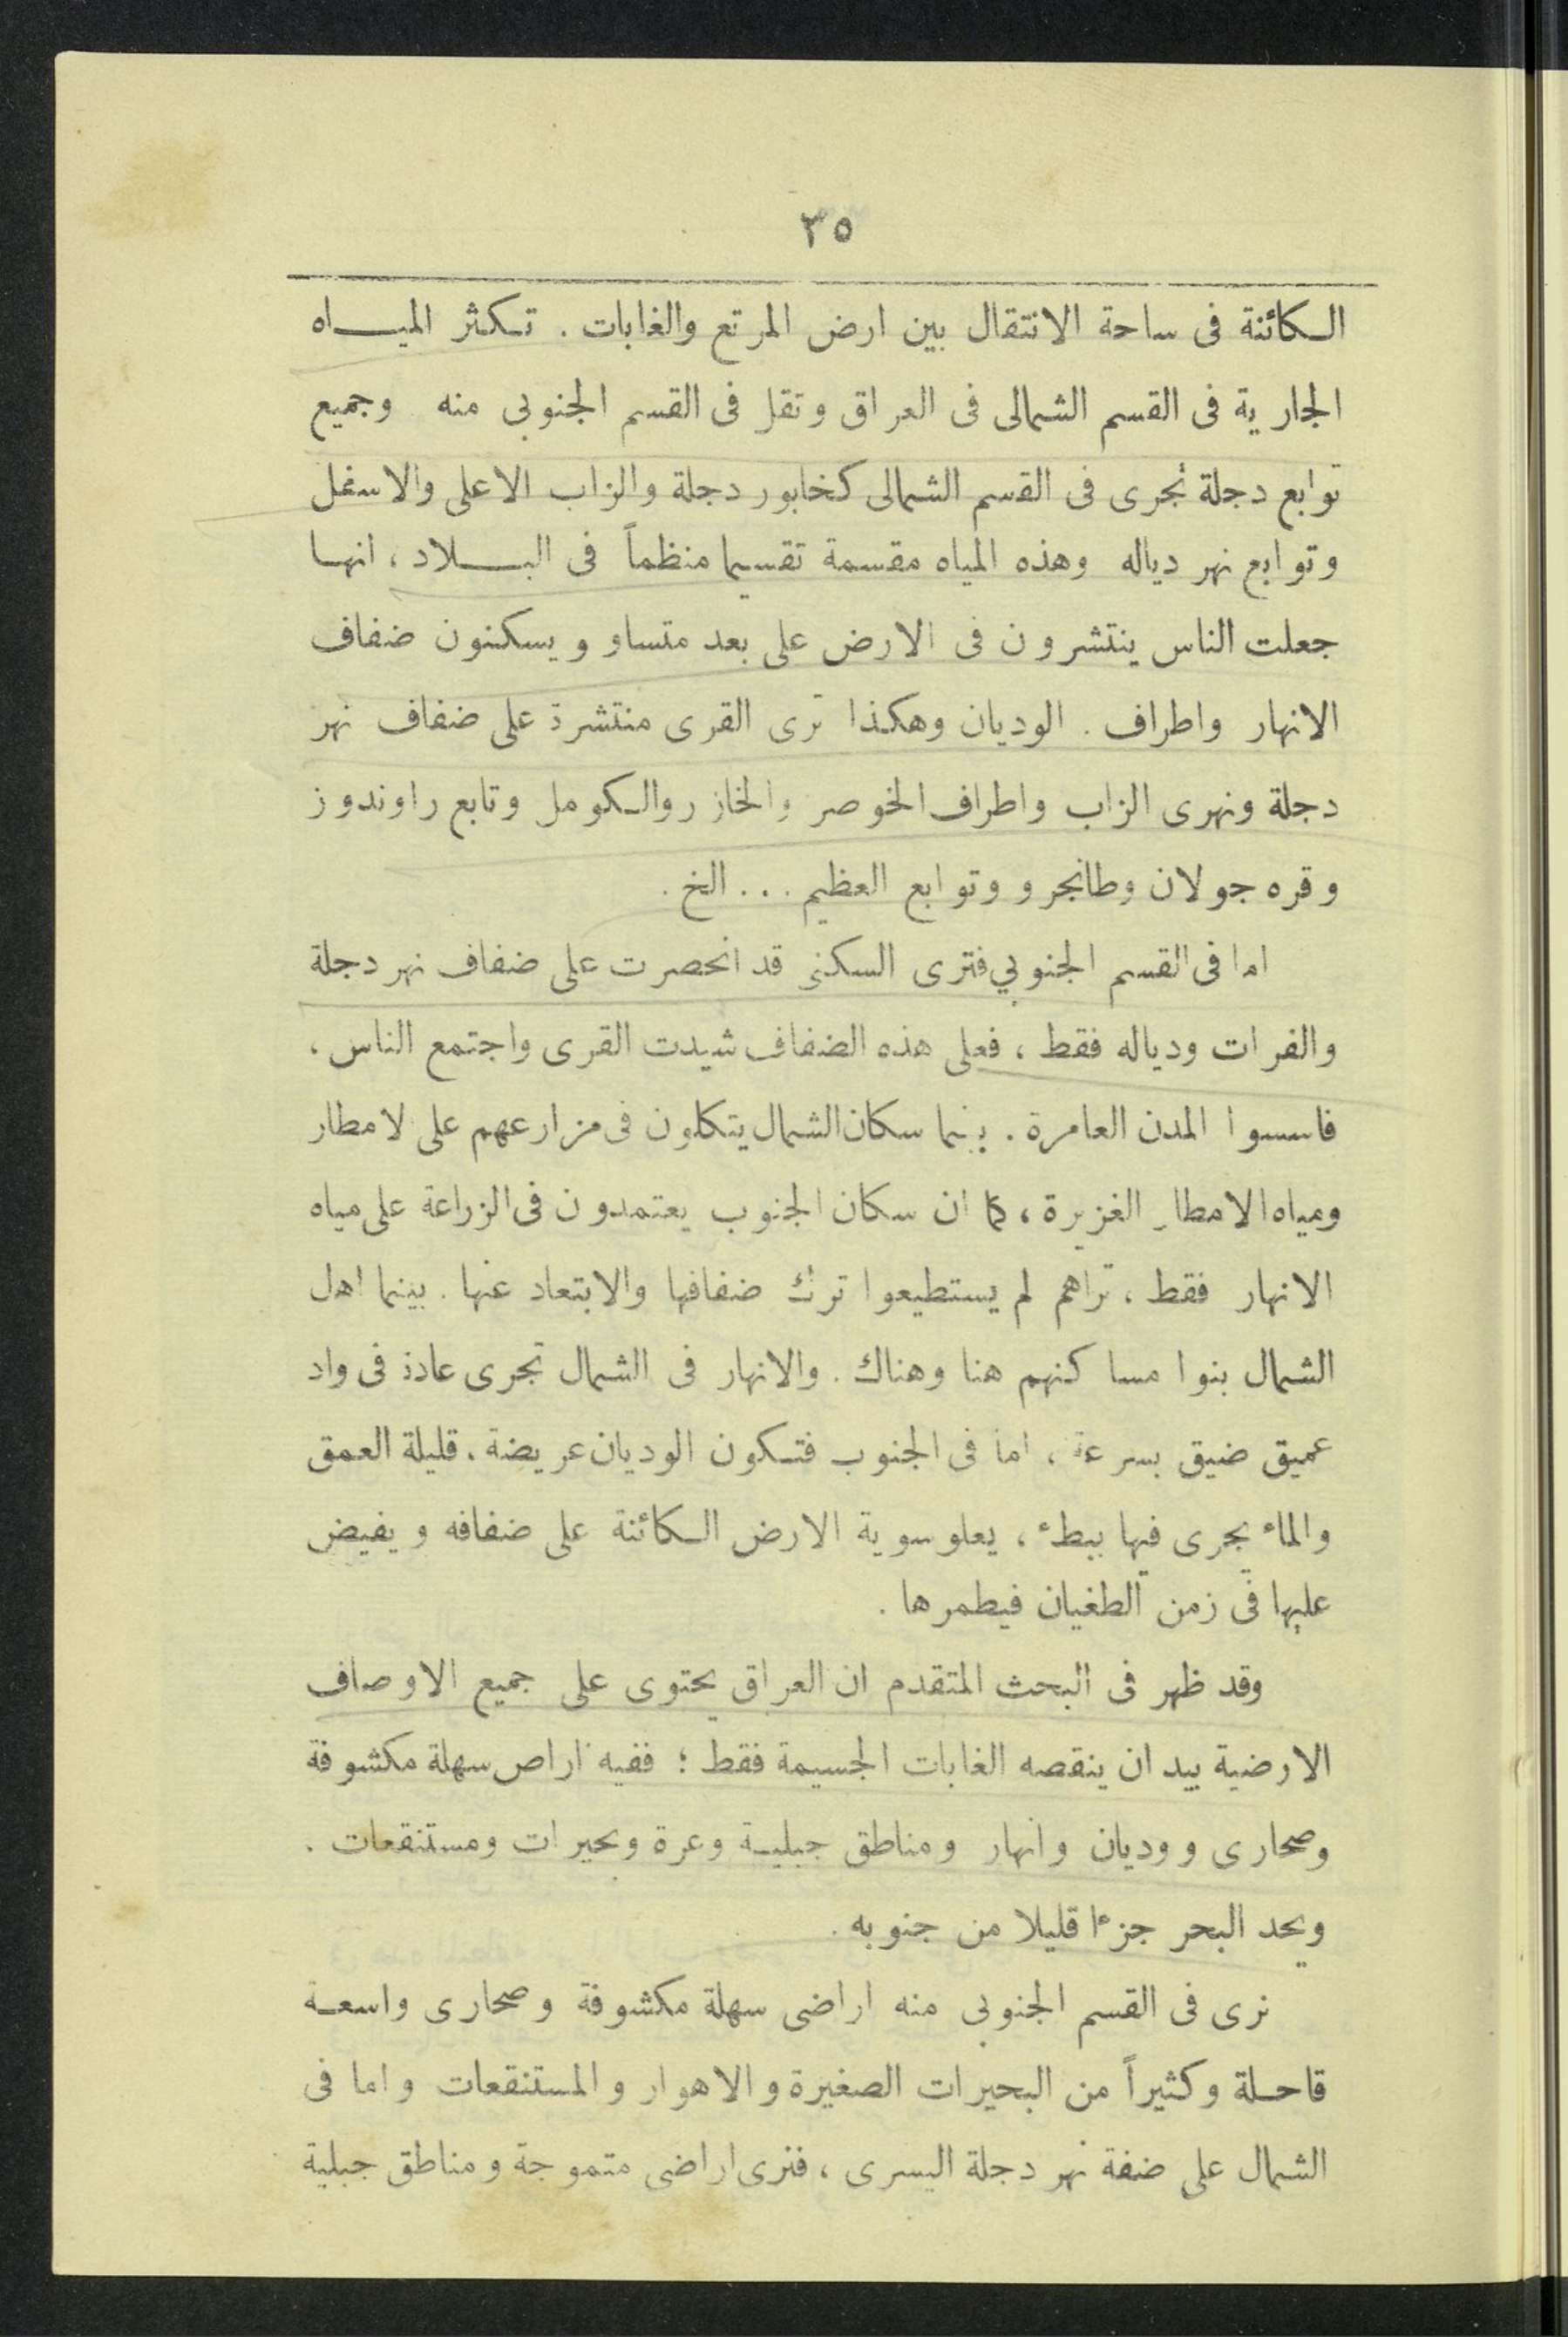 ٣٥
الكائنة فى ساحة الانتقال بين ارض المرتع والغابات . تكثر الميـــاه
الجارية فى القسم الشمالى فى العراق وتقل فى القسم الجنوبى منه وجميع
توابع دجلة تجرى فى القسم الشمالى كخابور دجلة والزاب الاعلى والاسفل
وتوابع نهر دياله وهذه المياه مقسمة تقسيما منظماً فى البـــلاد ، انهـا
جعلت الناس ينتشرون فى الارض على بعد متساو ويسكنون ضفاف
الانهار واطراف . الوديان وهكذا ترى القرى منتشرة على ضفاف نهر
دجلة ونهرى الزاب واطراف الخوصر والخازر والكومل وتابع راوندوز
وقره جولان وطانجرو وتوابع العظيم ... الخ .
اما فى القسم الجنوبي فترى السكنى قد انحصرت على ضفاف نهر دجلة
والفرات ودياله فقط ، فعلى هذه الضفاف شيدت القرى واجتمع الناس ،
فاسسوا المدن العامرة . بينما سكان الشمال يتكلون فى مزارعهم على لامطار
ومياه الامطار الغزيرة ، كما ان سكان الجنوب يعتمدون فى الزراعة على مياه
الانهار فقط ، تراهم لم يستطيعوا ترك ضفافها والابتعاد عنها . بينما اهل
الشمال بنوا مساكنهم هنا وهناك . والانهار فى الشمال تجرى عادة فى واد
عميق ضيق بسرعة ، اما فى الجنوب فتكون الوديان عريضة ، قليلة العمق
والماء يجرى فيها ببطء ، يعلو سوية الارض الكائنة على ضفافه ويفيض
عليها فى زمن الطغيان فيطمرها .
وقد ظهر فى البحث المتقدم ان العراق يحتوى على جميع الاوصاف
الارضية بيد ان ينقصه الغابات الجسيمة فقط ؛ ففيه اراص سهلة مكشوفة
وصحارى ووديان وانهار ومناطق جبليـة وعرة وبحيرات ومستنقعات .
ويحد البحر جزءا قليلا من جنوبه .
نرى فى القسم الجنوبى منه اراضى سهلة مكشوفة وصحارى واسعـة
قاحـلة وكثيراً من البحيرات الصغيرة والاهوار والمستنقعات واما فى
الشمال على ضفة نهر دجلة اليسرى ، فنرى اراضى متموجة ومناطق جبلية